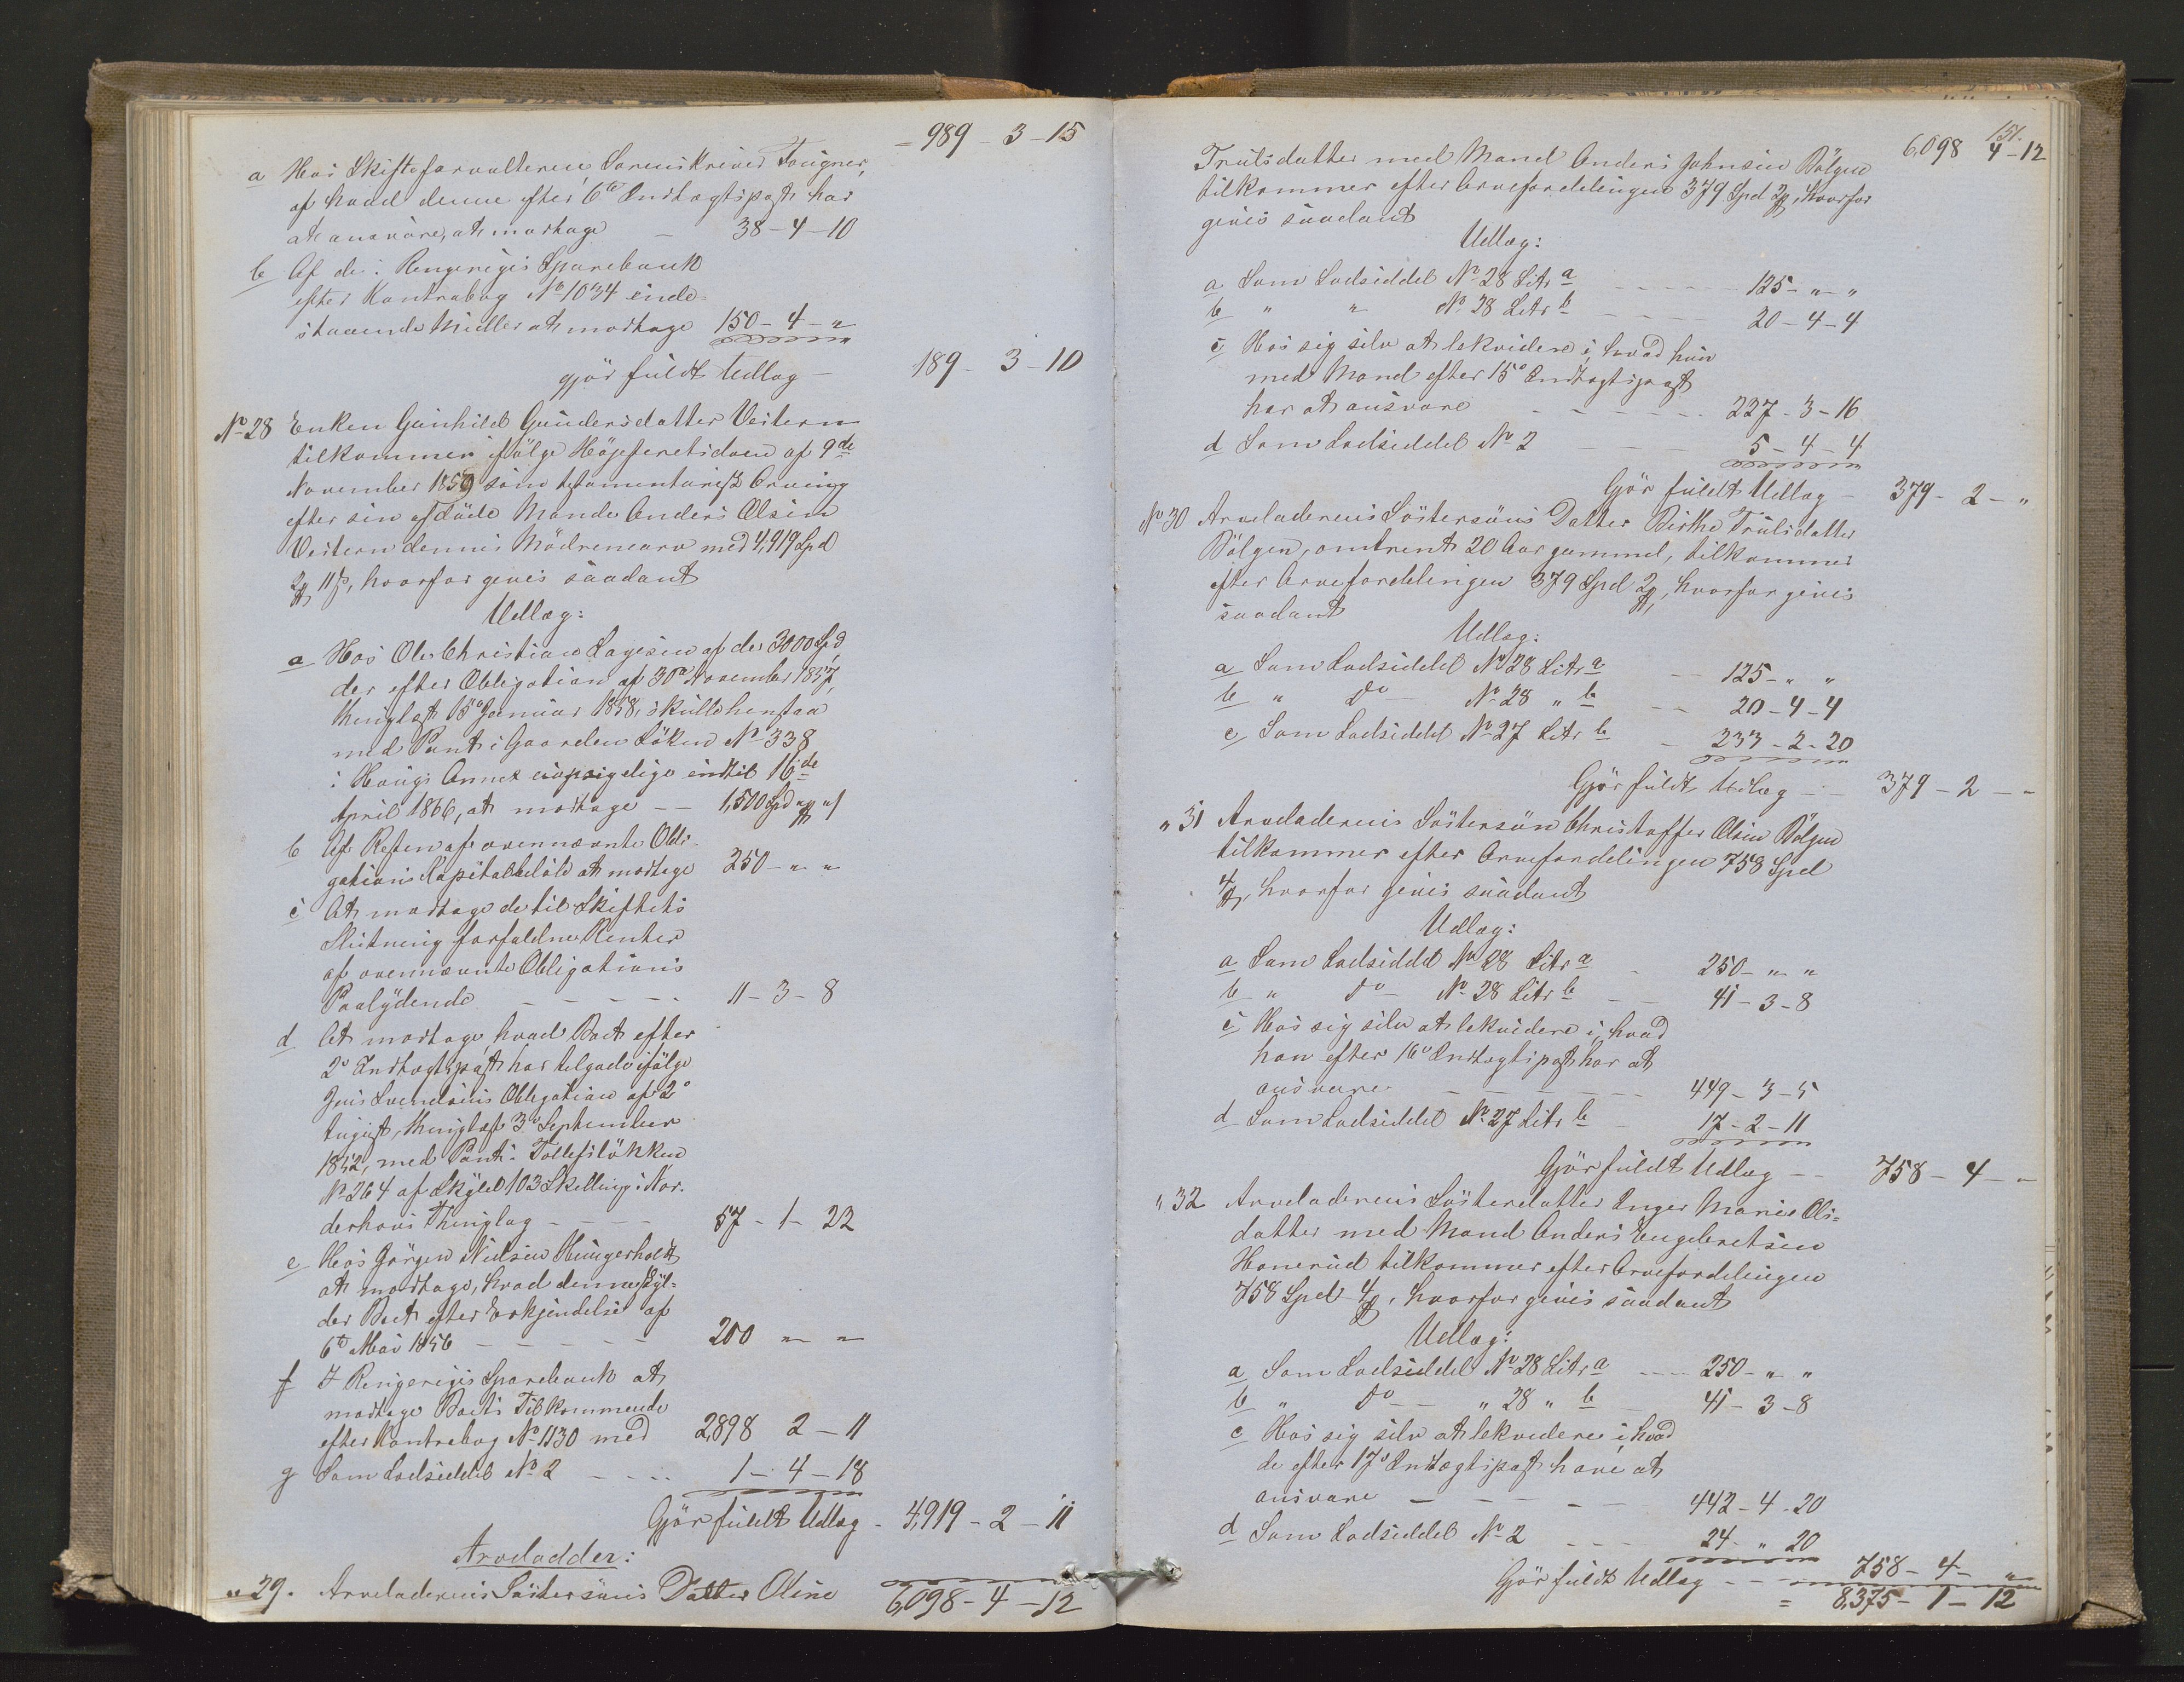 = 989 - 3 - 15
a Hos Skifteforvalteren Sorenskriver Fougner,
af hvad denne efter 6te Indtægtspost har
at ansvare, at modtage - 38 - 4 - 10
b Af de i Ringeriges Sparebank
efter Kontrabog No 1034 inde=
staaende Midler at modtage 150 - 4 - "
gjør fuldt Udlæg - 189 - 3 - 10
No 28 Enken Gunhild Gundersdatter Vestern
tilkommer ifølge Højesteretsdom af 9de
November 1859 som testamentarisk Arving
efter sin afdøde Mand Anders Olsen
Vestern dennes Mødrenearv med 4,919 Spd
2 11 , hvorfor gives saadant
Udlæg:
a Hos Ole Christian Lagesen af de 3000 Spd,
der efter Obligation af 30te November 1857,
thinglæst 18de Januar 1858, skulle henstaa
med Pant i Gaarden Løken No 338
i Hougs Annex uopsigelige indtil 16de
April 1866, at modtage - - 1,500 Spd " "
b Af Resten af ovennævnte Obli-
gations Kapitalbeløb at modtage 250 - " "
c At modtage de til Skiftets
Slutning forfaldne Renter
af ovennævnte Obligations
Paalydende - - - - - 11 - 3 - 8
d At modtage, hvad Boet efter
2o Indtægtspost har tilgode ifølge
Jens Svendsens Obligation af 2o
August, thinglæst 3o September
1852, med Pant i Tollefsløkken
No 264 af Skyld 103 Skilling i Nor-
derhovs Thinglag - - - - 57 - 1 - 22
e Hos Jørgen Nielsen Hungerholt
at modtage, hvad denne skyl=
der Boet efter Erkjendelse af
6te Mai 1856 - - - - - 200 " "
f I Ringeriges Sparebank at
modtage Boets Tilkommende
efter Kontrabog No 1130 med 2,898 2 - 11
g Som Lodseddel No 2 - - - 1 - 4 - 18
Gjør fuldt Udlæg - 4,919 - 2 - 11
Arvelodder:
" 29. Arveladerens Søstersøns Datter Oline 6,098 - 4 - 12
151.
6,098 4 - 12
Trulsdatter med Mand Anders Johnsen Bølgen
tilkommer efter Arvefordelingen 379 Spd 2 , hvorfor
gives saadant
Udlæg:
a Som Lodseddel No 28 Litr a - - - - - 125 - " - "
b " " No 28 Litr b - - - - 20 - 4 - 4
c Hos sig selv at lekvidere i, hvad hun
med Mand efter 15o Indtægtspost
har at ansvare - - - - - - 227 - 3 - 16
d Som Lodseddel No 2 - - - 5 - 4 - 4
Gjør fuldt Udlæg - 379 - 2 - "
No 30 Arveladerens Søstersøns Datter Birthe Trulsdatter
Bølgen, omtrent 20 Aar gammel, tilkommer
efter Arvefordelingen 379 Spd 2 , hvorfor gives
saadant
Udlæg:
a Som Lodseddel No 28 Litr a - - 125 - " "
b " Do - No 28 " b - - 20 - 4 - 4
c Som Lodseddel No 27 Litr b - 233 - 2 - 20
Gjør fuldt Udlæg - - 379 - 2 - -
" 31 Arveladerens Søstersøn Christoffer Olsen Bølgen
tilkommer efter Arvefordelingen 758 Spd
4 , hvorfor gives saadant
Udlæg:
a Som Lodseddel No 28 Litr a - 250 - " "
b " Do - No 28 Litr b - - 41 - 3 - 8
c Hos sig selv at lekvidere i, hvad
han efter 16o Indtægtspost har at
ansvare - - - - - - 449 - 3 - 5
d Som Lodseddel No 27 Litr b - 17 - 2 - 11
Gjør fuldt Udlæg - - 758 - 4 - "
" 32 Arveladerens Søsterdatter Inger Marie Ols=
datter med Mand Anders Engebretsen
Honerud tilkommer efter Arvefordelingen
758 Spd 4 , hvorfor gives saadant
Udlæg:
a Som Lodseddel No 28 Litr a - - - 250 - " "
b " Do - - " 28 " b - 41 - 3 - 8
c Hos sig selv at lekvidere i hvad
de efter 17o Indtægtspost have at
ansvare - - - - - 442 - 4 - 20
d Som Lodseddel No 2 - - - 24 - " 20
Gjør fuldt Udlæg - - - 758 - 4 - "
= 8,375 - 1 - 12